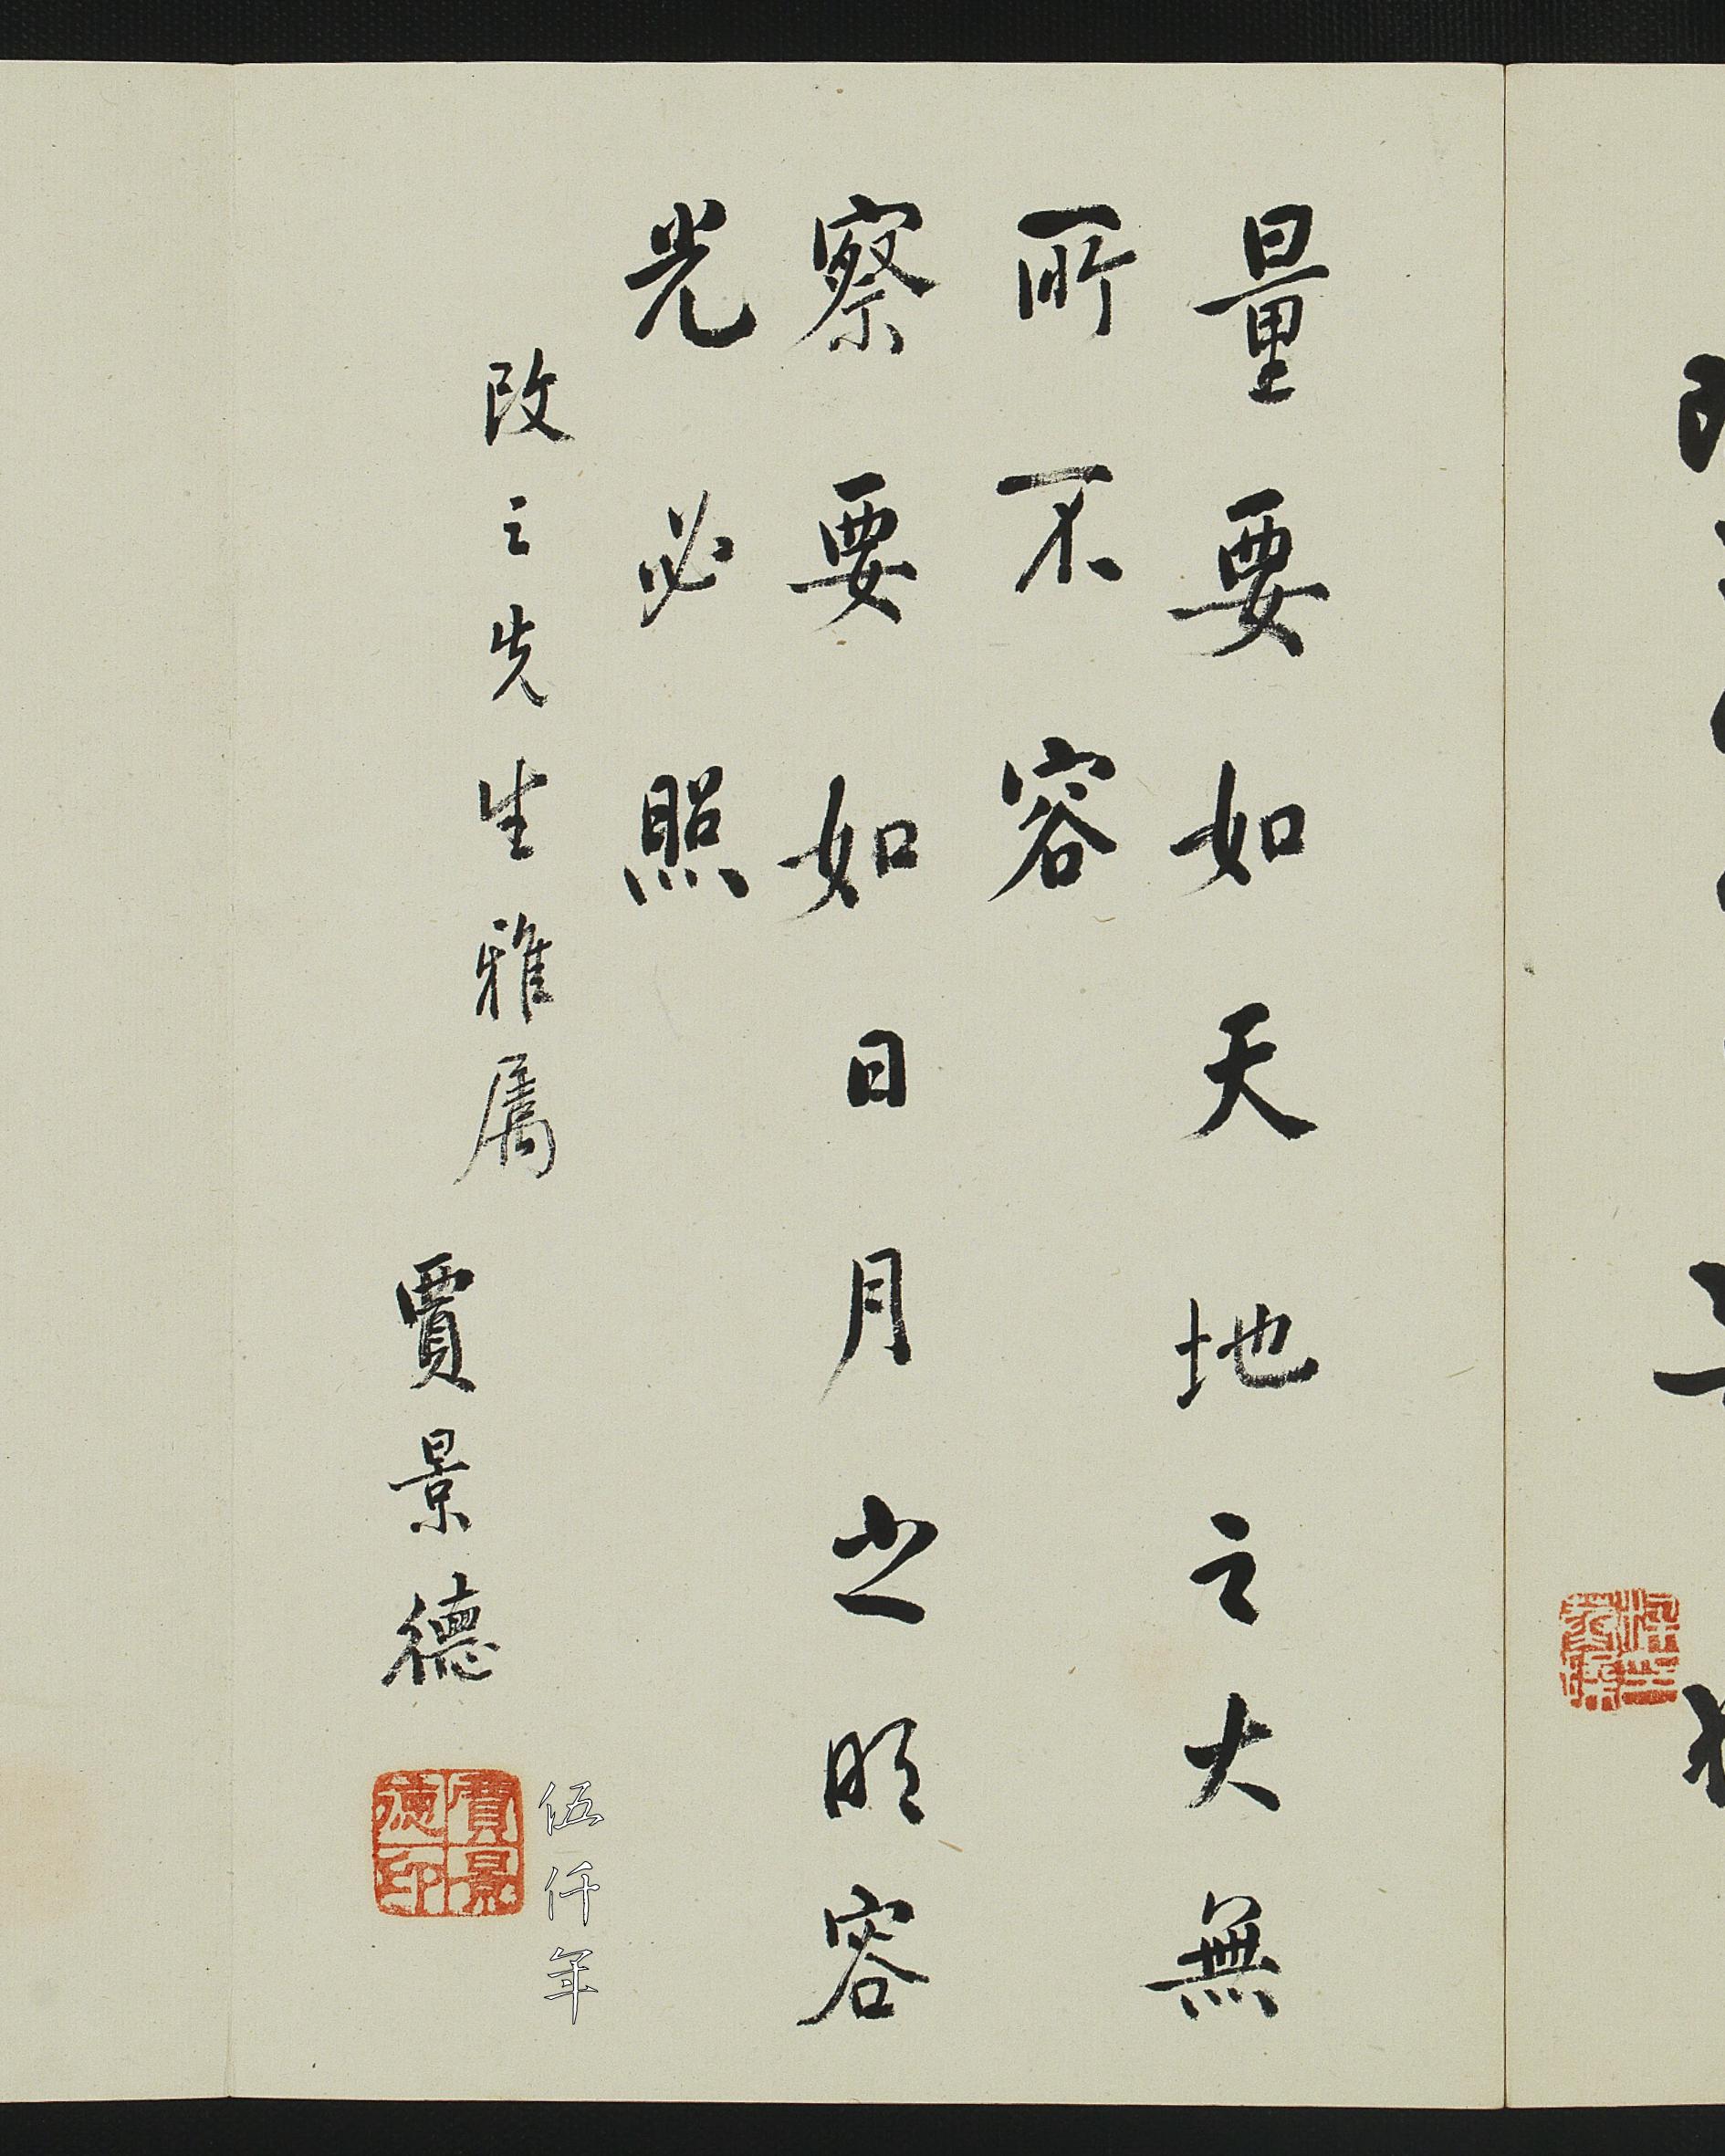 量要如天地之大無
所不容
察要如日月之明容
光必照
改之先生雅屬
賈景德
賈景德印
伍仟年